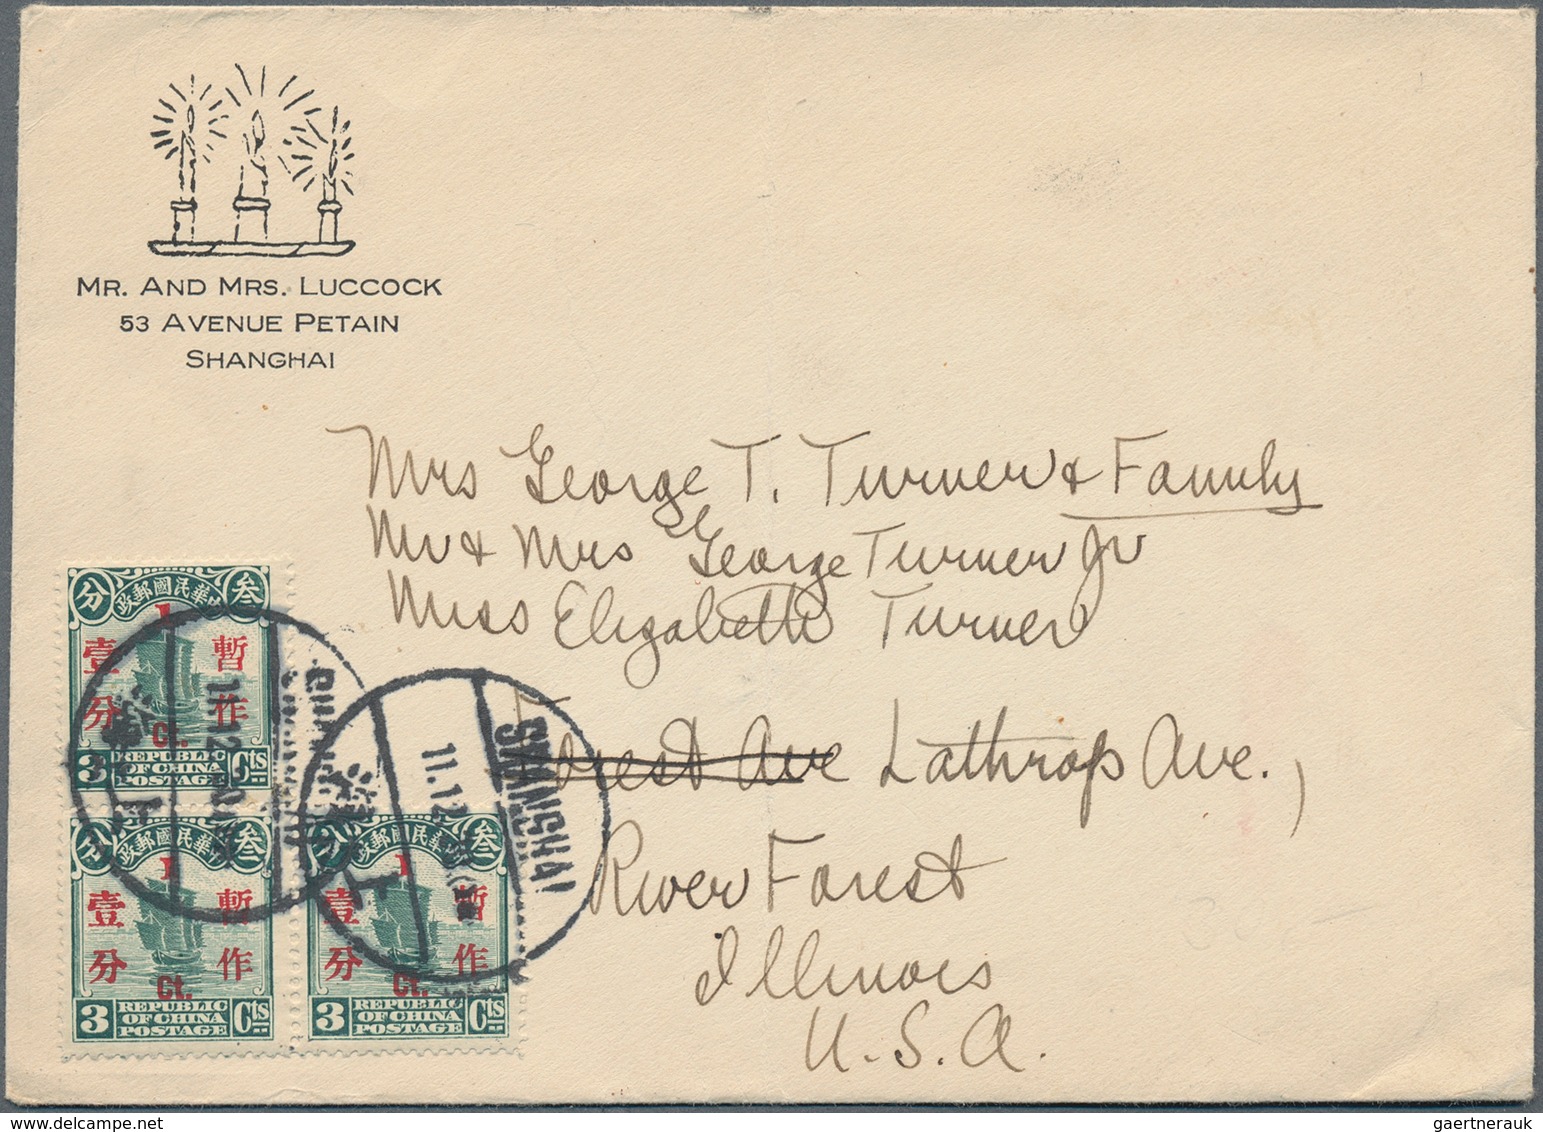 MR. AND MRS. LUCCOCK
53 AVENUE PETAIN
SHANGHAI
Mrs George T. Turner & Family
Mr & Mrs George Turner Jr
Miss Elizabeth Turner
Forest Ave Lathrop Ave.,
River Forest
Illinois
U.S.A.
分 政郵國民華中 叁
1
壹 暫
分 作
Ct.
3 REPUBLIC OF CHINA POSTAGE Cts
分 政郵國民華中 叁
1
壹 暫
分 作
Ct.
3 REPUBLIC OF CHINA POSTAGE Cts
分 政郵國民華中 叁
1
壹 暫
分 作
Ct.
3 REPUBLIC OF CHINA POSTAGE Cts
SHANGHAI
SHANGHAI
上
11.12
上
SHANGHAI
gaertnerauk